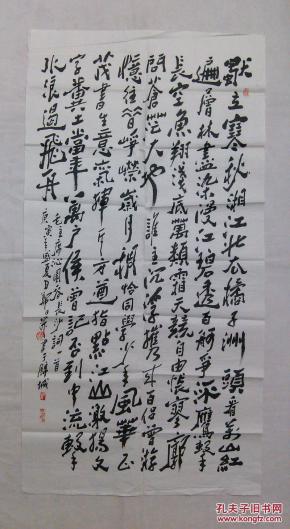 獨立寒秋湘江北去橘子洲頭看萬山紅
遍層林盡染漫江碧透百舸爭流鷹擊
長空魚翔淺底萬類霜天競自由悵寥廓
問蒼茫大地誰主沉浮攜來百侶曾遊
憶往昔崢嶸歲月稠恰同學少年風華正
茂書生意氣揮斥方遒指點江山激揚文
字糞土當年萬戶侯曾記否到中流擊
水浪遏飛舟
毛主席沁園春長沙詞一首
庚寅之盛夏
孔夫子旧书网